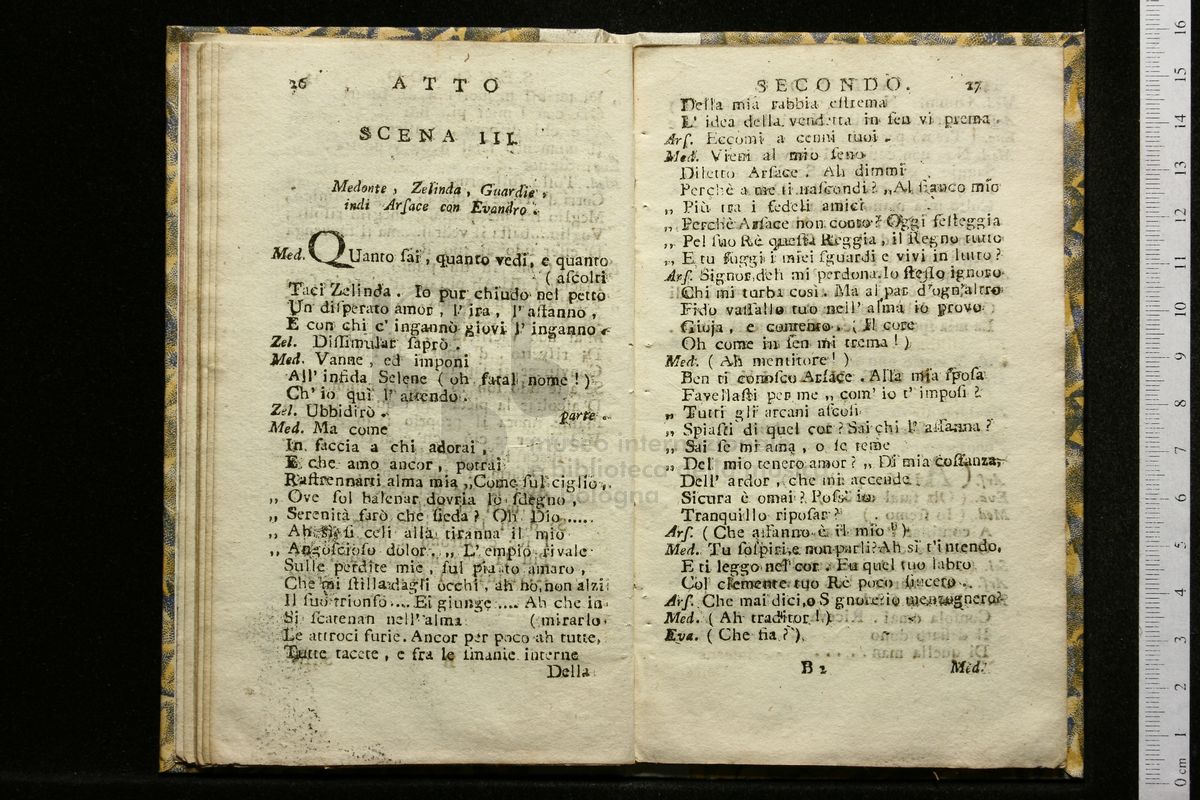 26 ATTO
SCENA III.
Medonte, Zelinda, Guardie,
indi Arſace con Evandro.
Med. QUanto ſai, quanto vedi, e quanto
( aſcolti
Taci Zelinda. Io pur chiudo nel petto
Un diſperato amor, l' ira, l' affanno,
E con chi c' ingannò giovi l' inganno.
Zel. Diſſimular ſaprò.
Med. Vanne, ed imponi
All' infida Selene ( oh fatal nome! )
Ch' io quì l' attendo.
Zel. Ubbidirò. parte.
Med. Ma come
In faccia a chi adorai,
E che amo ancor, potrai
Raffrennarti alma mia „Come ſul ciglio,
„ Ove ſol balenar dovria lo ſdegno,
„ Serenità farò che ſieda? Oh Dio.....
„ Ah ſi ſi celi alla tiranna il mio
„ Angoſcioſo dolor. „ L' empio rivale
Sulle perdite mie, ſul pianto amaro,
Che mi ſtilla dagli occhi, ah nò, non alzi
Il ſuo trionfo.... Ei giunge.... Ah che in
Si ſcatenan nell' alma ( mirarlo
Le attroci furie. Ancor per poco ah tutte,
Tutte tacete, e fra le ſmanie interne
Della
SECONDO. 27
Della mia rabbia eſtrema
L' idea della vendetta in ſen vi prema.
Arſ. Eccomi a cenni tuoi.
Med. Vieni al mio ſeno
Diletto Arſace. Ah dimmi
Perchè a me ti naſcondi? „Al fianco mio
„ Più tra i fedeli amici
„ Perchè Arſace non conto? Oggi feſteggia
„ Pel ſuo Rè queſta Reggia, il Regno tutto
„ E tu fuggi i miei ſguardi e vivi in lutto?
Arſ. Signor, deh mi perdona. Io ſteſſo ignoro
Chi mi turba così. Ma al par d'ogn'altro
Fido vaſſallo tuo nell' alma io provo
Gioja, e contento. ( Il core
Oh come in ſen mi trema! )
Med. ( Ah mentitore! )
Ben ti conoſco Arſace. Alla mia ſpoſa
Favellaſti per me „ com' io t' impoſi?
„ Tutti gli arcani aſcoſi
„ Spiaſti di quel cor? Sai chi l' affanna?
„ Sai ſe mi ama, o ſe teme
„ Del mio tenero amor? „ Di mia coſtanza,
Dell' ardor, che mi accende
Sicura è omai? Poſs' io
Tranquillo ripoſar?
Arſ. ( Che affanno è il mio! )
Med. Tu ſoſpiri, e non parli? Ah sì t'intendo,
E ti leggo nel cor. Fu quel tuo labro
Col clemente tuo Rè poco ſincero.
Arſ. Che mai dici, o Signore? io menzognero?
Med. ( Ah traditor! )
Eva. ( Che fia? )
B 2 Med.
museo internazionale
e biblioteca della musica
bologna
0 cm 1 2 3 4 5 6 7 8 9 10 11 12 13 14 15 16